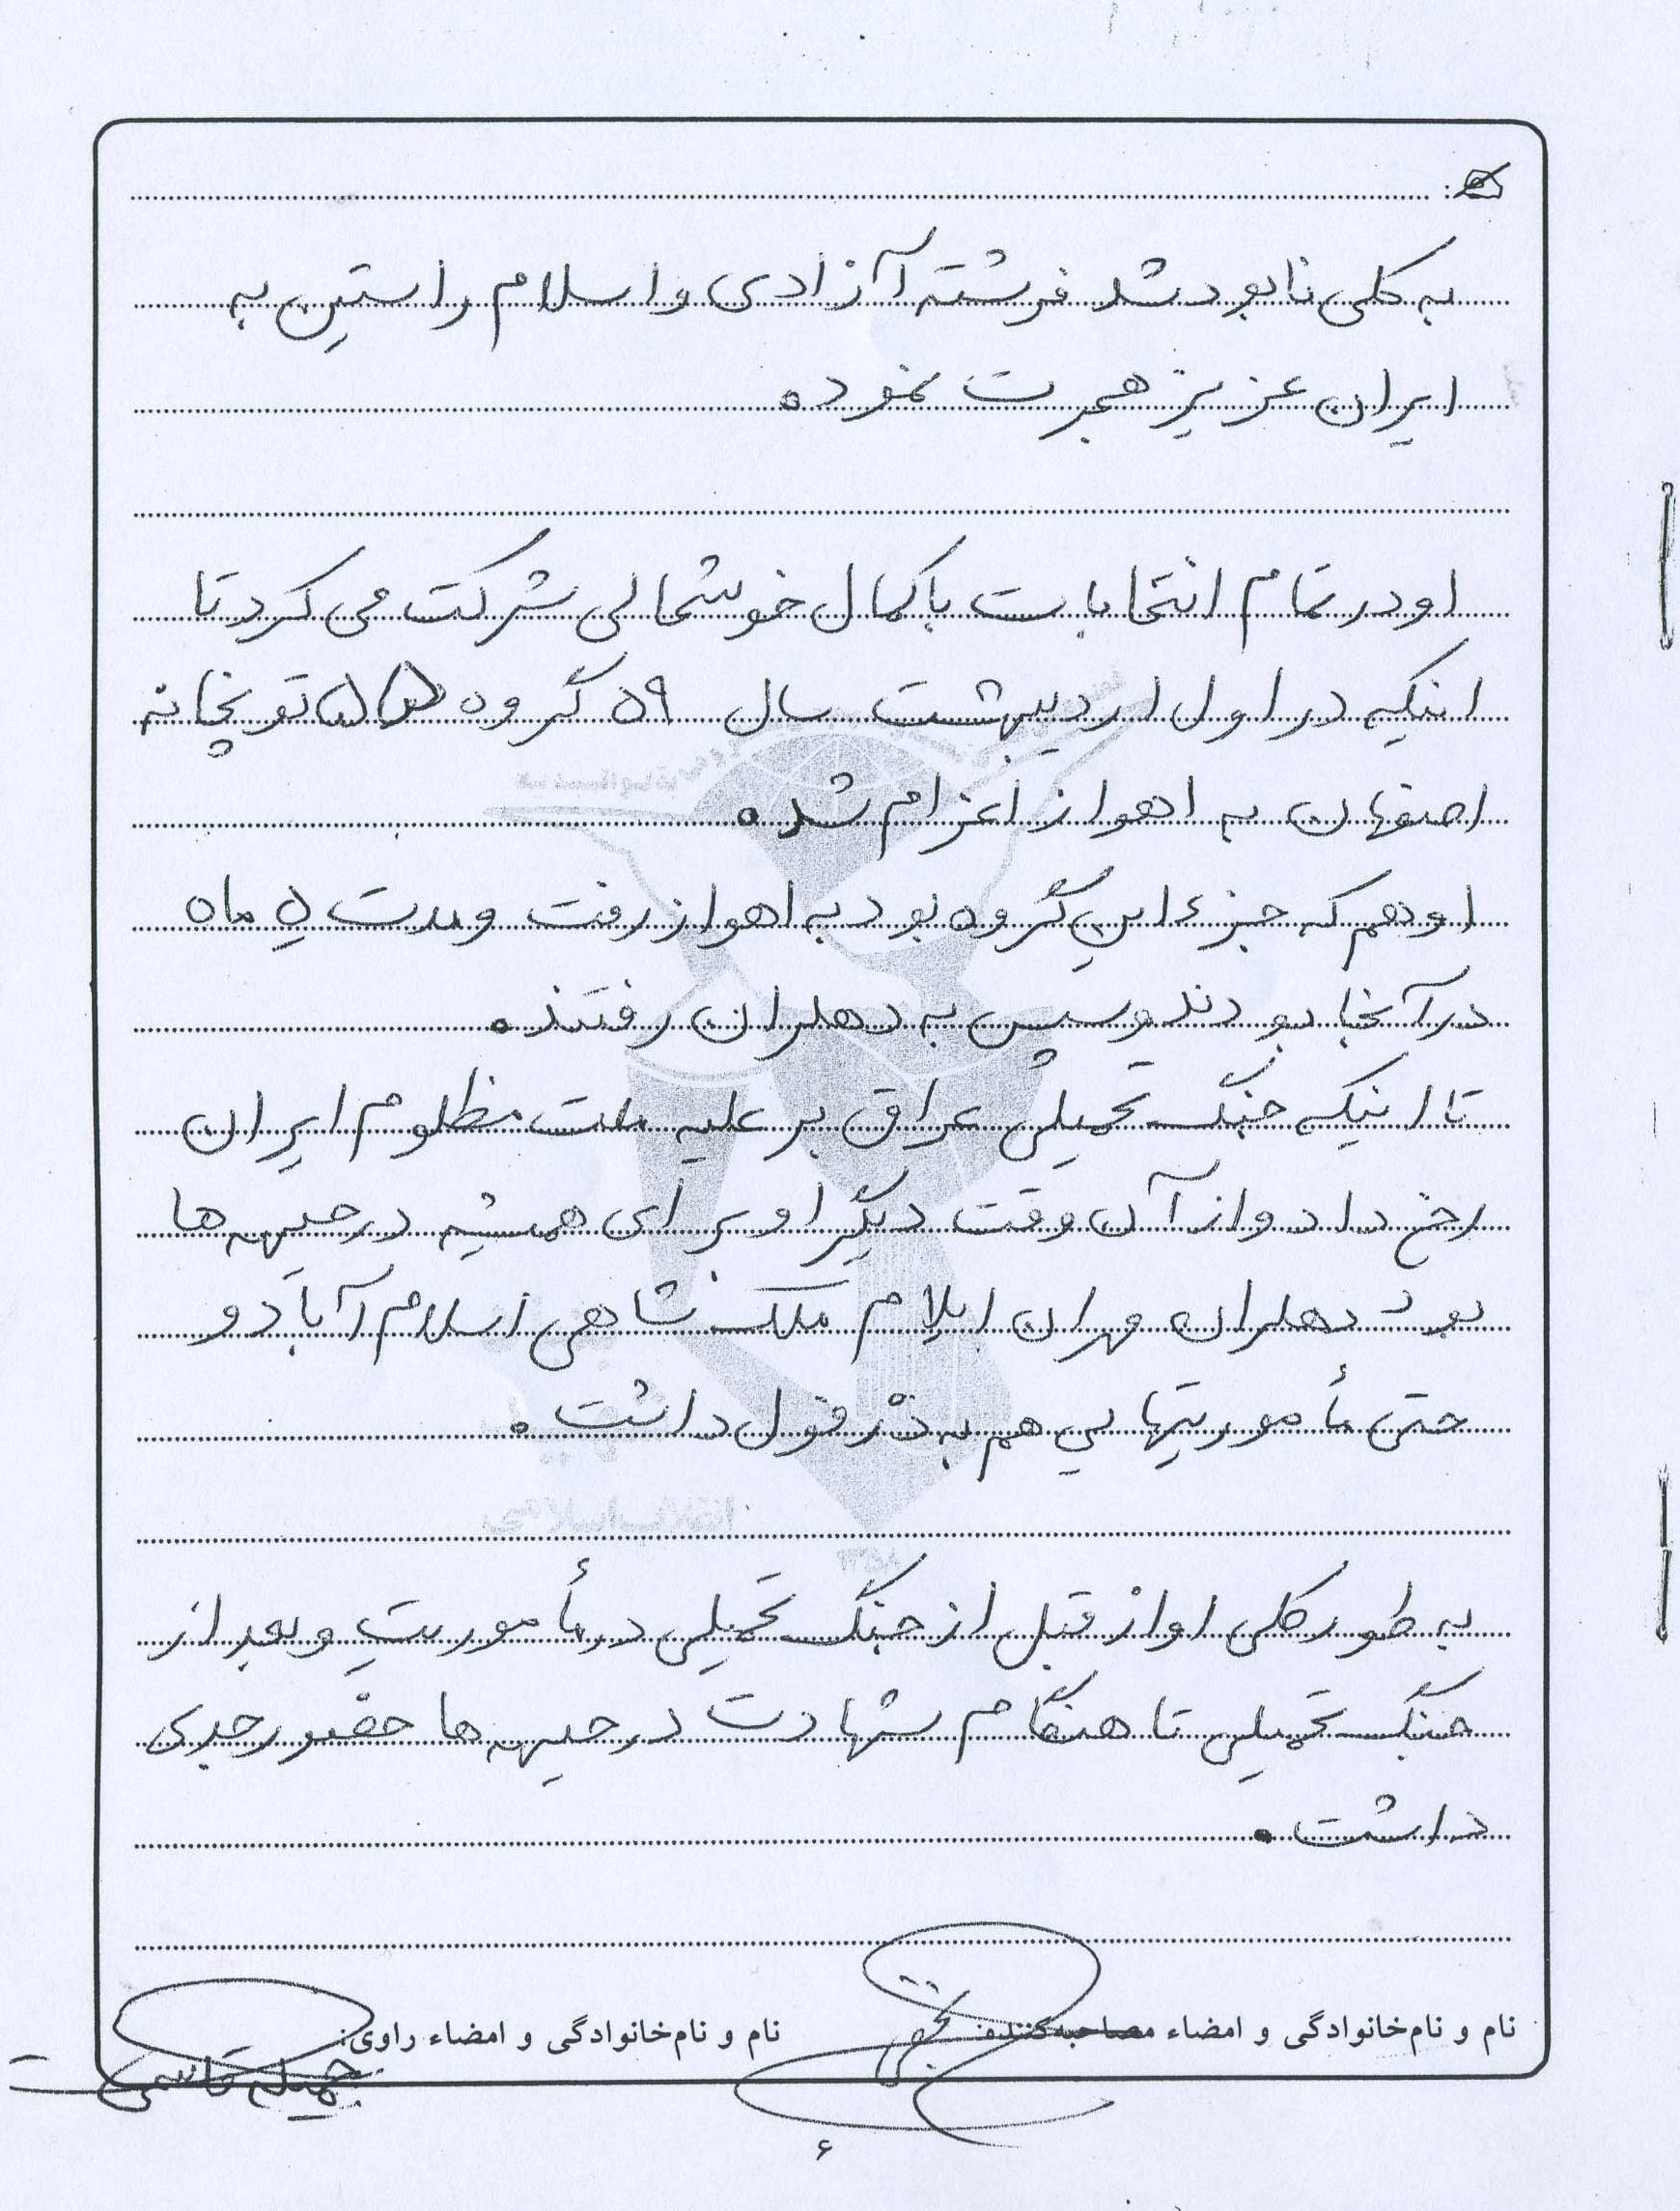 به کلی نابود شد فرشته آزادی و اسلام راستین به
ایران عزیز هجرت نمود.
او در تمام انتخابات با کمال خوشحالی شرکت می کرد تا
اینکه در اول اردیبهشت سال ۵۹ گروه ۵۵ توپخانه
اصفهان به اهواز اعزام شد.
او هم که جزء این گروه بود به اهواز رفت و مدت ۵ ماه
در آنجا بودند و سپس به دهلران رفتند.
تا اینکه جنگ تحمیلی عراق بر علیه ملت مظلوم ایران
رخ داد و از آن وقت دیگر او برای همیشه در جبهه ها
بود دهلران مهران ایلام ملک شاهی اسلام آباد و
حتی مأموریتهایی هم به دزفول داشت.
به طور کلی او از قبل از جنگ تحمیلی در مأموریت و بعد از
جنگ تحمیلی تا هنگام شهادت در جبهه ها حضور جدی
داشت.
نام و نام‌خانوادگی و امضاء مصاحبه‌کننده:
نام و نام‌خانوادگی و امضاء راوی:
جمیله قاسمی
۶